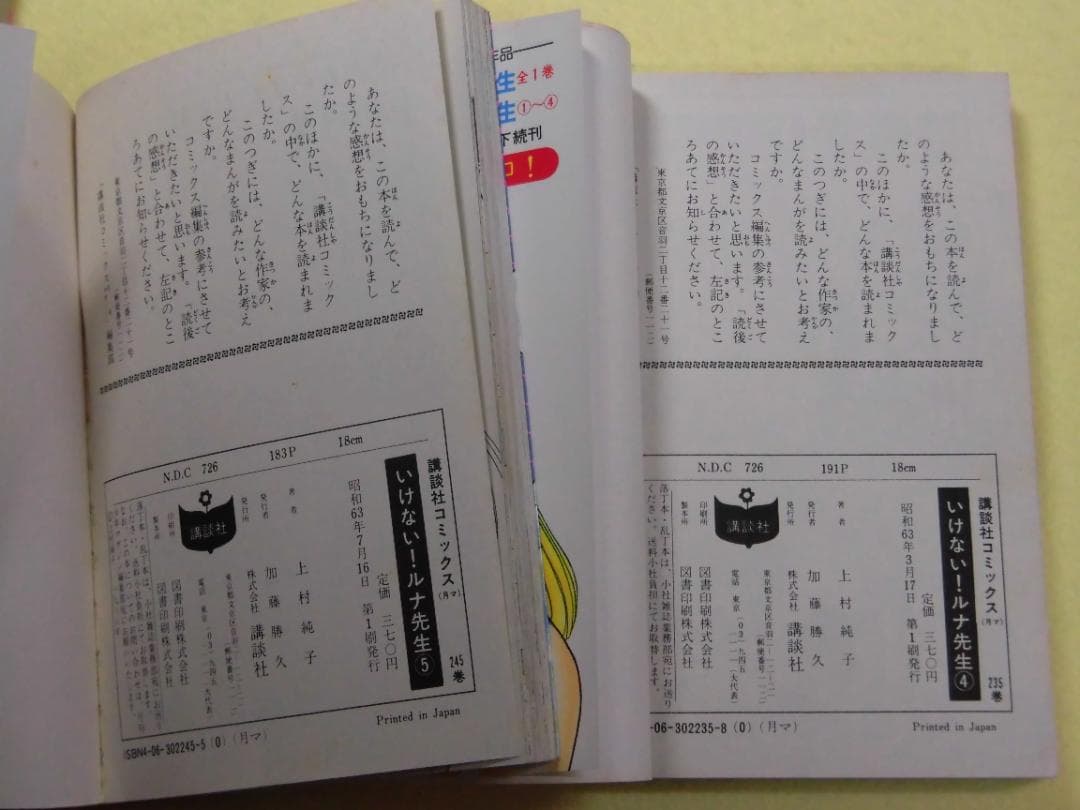 あなたは、この本を読んで、ど
のような感想をおもちになりまし
たか。
このほかに、「講談社コミック
ス」の中で、どんな本を読まれま
したか。
このつぎには、どんな作家の、
どんなまんがを読みたいとお考え
ですか。
コミックス編集の参考にさせて
いただきたいと思います。「読後
の感想」と合わせて、左記のとこ
ろあてにお知らせください。
東京都文京区音羽二丁目十二番二十一号
(郵便番号一一二)
N.D.C 726
183P
18cm
講談社コミックス(月マ)
245巻
いけない!ルナ先生⑤
定価 三七〇円
昭和63年7月16日 第1刷発行
著者 上村純子
発行者 加藤勝久
発行所 株式会社 講談社
講談社
印刷所 図書印刷株式会社
製本所 図書印刷株式会社
Printed in Japan
ISBN4-06-302245-5 (0) (月マ)
作品
生 全1巻
生 ①~④
下続刊
コ!
あなたは、この本を読んで、ど
のような感想をおもちになりまし
たか。
このほかに、「講談社コミック
ス」の中で、どんな本を読まれま
したか。
このつぎには、どんな作家の、
どんなまんがを読みたいとお考え
ですか。
コミックス編集の参考にさせて
いただきたいと思います。「読後
の感想」と合わせて、左記のとこ
ろあてにお知らせください。
東京都文京区音羽二丁目十二番二十一号
(郵便番号一一二)
N.D.C 726
191P
18cm
講談社コミックス(月マ)
235巻
いけない!ルナ先生④
定価 三七〇円
昭和63年3月17日 第1刷発行
著者 上村純子
発行者 加藤勝久
発行所 株式会社 講談社
講談社
印刷所 図書印刷株式会社
製本所 図書印刷株式会社
落丁本・乱丁本は、小社雑誌業務部宛にお送り
ください。送料小社負担にてお取替します。
Printed in Japan
-06-302235-8 (0) (月マ)